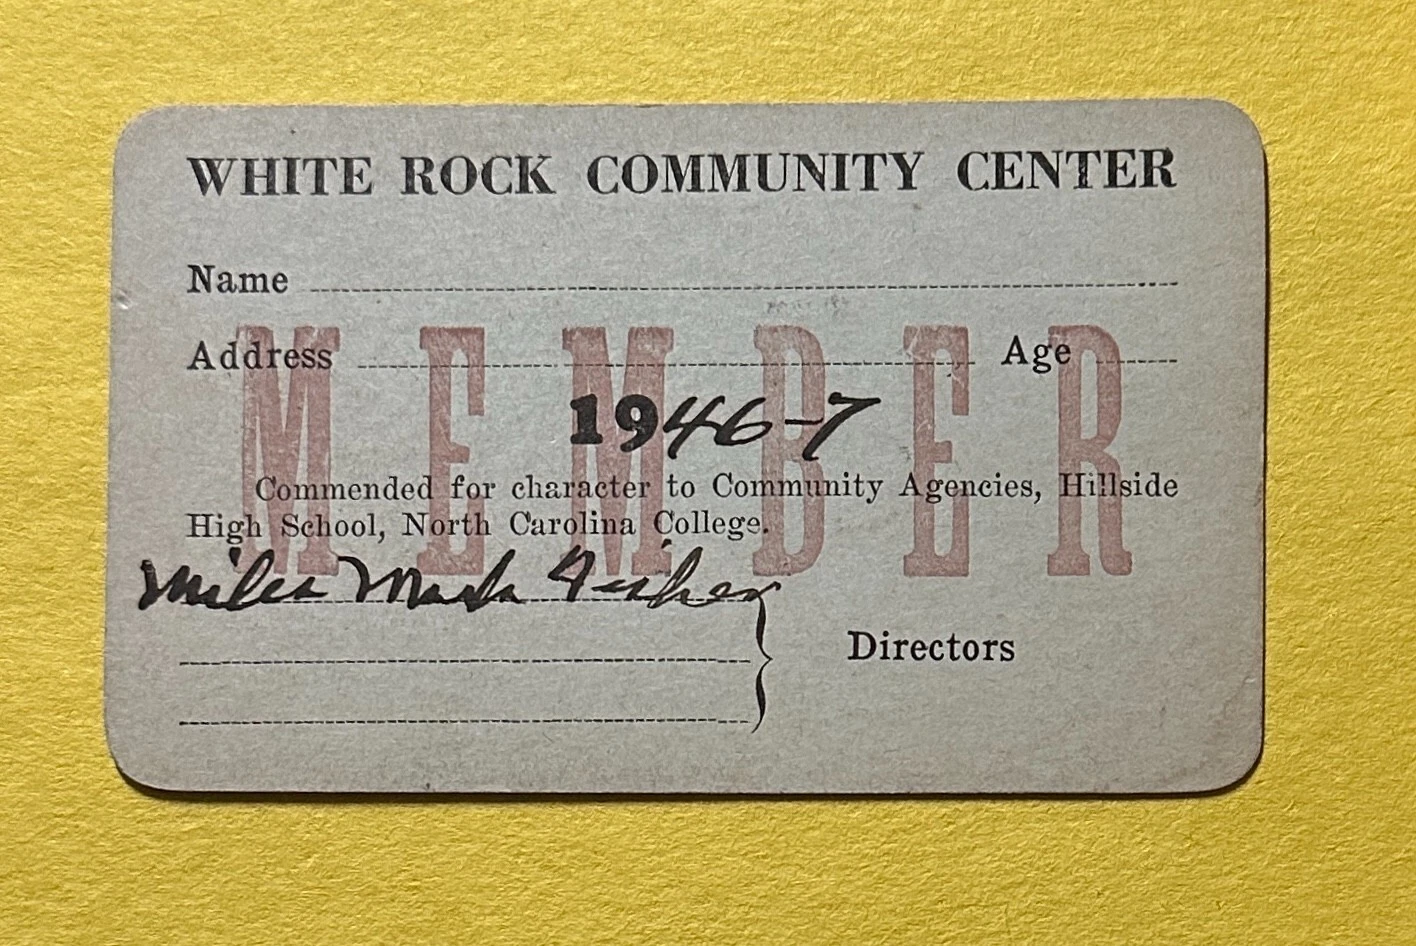 WHITE ROCK COMMUNITY CENTER
Name
Address Age
MEMBER
1946-7
Commended for character to Community Agencies, Hillside
High School, North Carolina College.
Miles Mark Fisher
Directors